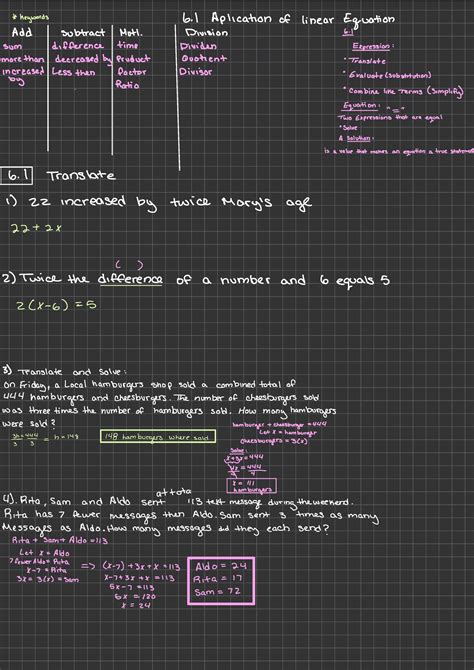 * Keywords
6.1 Aplication of linear Equation
Add Subtract Mutl. Division 6.1
sum difference time Dividen Expression:
more than decreased by Product Quotient * Translate
increased by Less then Factor Divisor * Evaluate (substitution)
Ratio * Combine like Terms (Simplify)
Equation: "="
Two Expressions that are equal
* Solve
A Solution:
is a value that makes an equation a true statement
6.1 Translate
1) 22 increased by twice Mary's age
22 + 2x
( )
2) Twice the difference of a number and 6 equals 5
2(x-6) = 5
3) Translate and Solve:
On Friday, a Local hamburgers shop sold a combined total of
444 hamburgers and cheesburgers. The number of cheesburgers sold
was three times the number of hamburgers sold. How many hamburgers
were sold?
hamburger + cheesburger = 444
Let x = hamburger
cheesburgers = 3(x)
3h = 444
3 3
= h = 148
148 hamburgers where sold
Solve:
x + 3x = 444
4x = 444
4 4
x = 111
hamburgers
4). Rita, Sam and Aldo sent 113 text message during the weekend.
Rita has 7 fewer messages then Aldo. Sam sent 3 times as many
Messages as Aldo. How many messages did they each send?
Rita + Sam + Aldo = 113
Let x = Aldo
7 fewer Aldo = Rita
x-7 = Rita
3x = 3(x) = Sam
=> (x-7) + 3x + x = 113
x-7+3x+x = 113
5x-7 = 113
5x = 120
x = 24
Aldo = 24
Rita = 17
Sam = 72